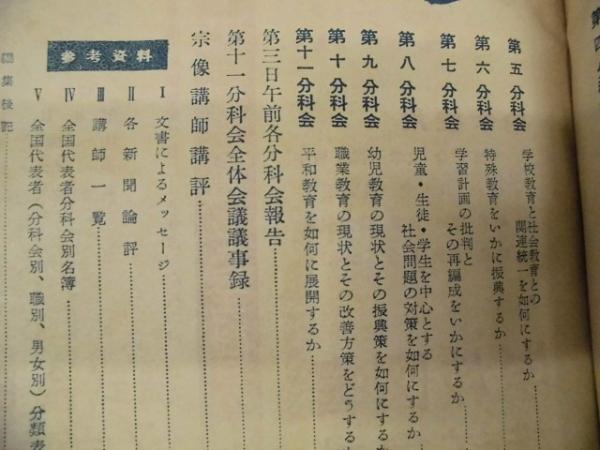 第五分科会 学校教育と社会教育との
関連統一を如何にするか
第六分科会 特殊教育をいかに振興するか
第七分科会 学習計画の批判と
その再編成をいかにするか
第八分科会 児童・生徒・学生を中心とする
社会問題の対策を如何にするか
第九分科会 幼児教育の現状とその振興策を如何にするか
第十分科会 職業教育の現状とその改善方策をどうする
第十一分科会 平和教育を如何に展開するか
第三日午前各分科会報告
第十一分科会全体会議議事録
宗像講師講評
参考資料
Ⅰ 文書によるメッセージ
Ⅱ 各新聞論評
Ⅲ 講師一覧
Ⅳ 全国代表者分科会別名簿
Ⅴ 全国代表者(分科会別、職別、男女別)分類表
編集後記